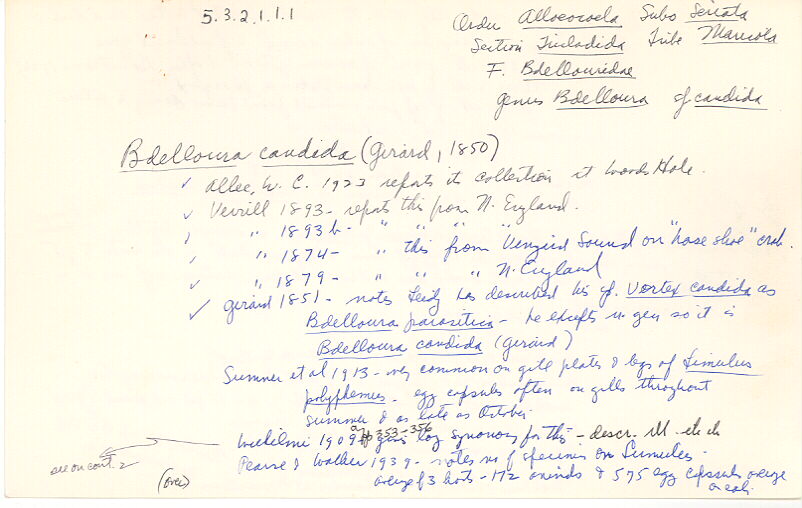 5.3.2.1.1.1
Order Alloeocoela Subo Seriata
Section Tricladida Tribe Maricola
F. Bdellouridae
genus Bdelloura sp candida
Bdelloura candida (Girard, 1850)
✓ Allee, W. C. 1923 reports its collection at Woods Hole.
✓ Verrill 1893 - reports this from N. England.
✓ " 1893 b - " " " "
✓ " 1874 - " this from Vineyard Sound on "horse shoe" crab.
✓ " 1879 - " " " N. England
✓ Girard 1851 - notes Leidy has described his sp. Vortex candida as
Bdelloura parasitica - he accepts n. gen so it is
Bdelloura candida (Girard)
Sumner et al 1913 - very common on gill plates & legs of Limulus
polyphemus. egg capsules often on gills throughout
summer & as late as October.
1909a pp 353-356 gives long synonomy for this - descr. Ill. etc
Pearse & Walker 1939 - notes no of specimens on Limulus.
average of 3 hosts - 172 animals & 575 egg capsules average
on each.
see on cont. 2
(over)